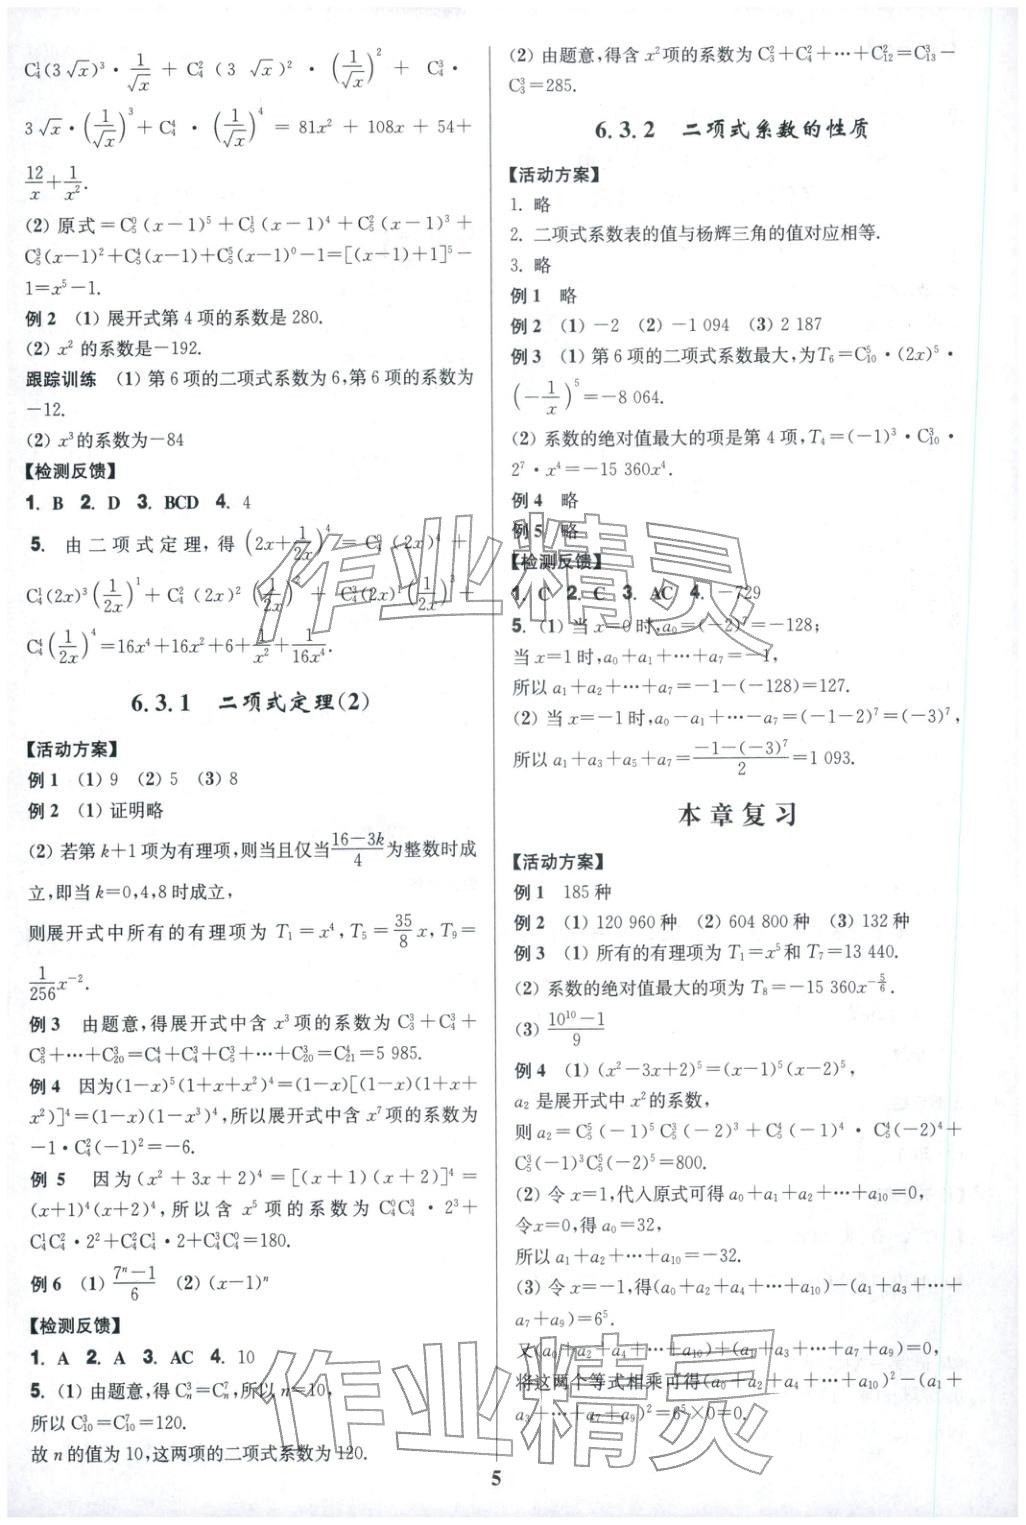 C₄¹(3√x)³·1/√x + C₄²(3√x)²·(1/√x)² + C₄³·
3√x·(1/√x)³+C₄⁴·(1/√x)⁴=81x²+108x+54+
12/x+1/x².
(2) 原式=C₅⁰(x-1)⁵+C₅¹(x-1)⁴+C₅²(x-1)³+
C₅³(x-1)²+C₅⁴(x-1)+C₅⁵(x-1)⁰-1=[(x-1)+1]⁵-
1=x⁵-1.
例 2 (1) 展开式第 4 项的系数是 280.
(2) x² 的系数是-192.
跟踪训练 (1) 第 6 项的二项式系数为 6,第 6 项的系数为
-12.
(2) x³的系数为-84
【检测反馈】
1. B 2. D 3. BCD 4. 4
5. 由二项式定理,得(2x+1/2x)⁴=C₄⁰(2x)⁴+
C₄¹(2x)³(1/2x)¹+C₄²(2x)²(1/2x)²+C₄³(2x)¹(1/2x)³+
C₄⁴(1/2x)⁴=16x⁴+16x²+6+1/x²+1/16x⁴.
6.3.1 二项式定理(2)
【活动方案】
例 1 (1) 9 (2) 5 (3) 8
例 2 (1) 证明略
(2) 若第 k+1 项为有理项,则当且仅当(16-3k)/4为整数时成
立,即当 k=0,4,8 时成立,
则展开式中所有的有理项为 T₁=x⁴,T₅=35/8 x,T₉=
1/256 x⁻².
例 3 由题意,得展开式中含 x³ 项的系数为 C₃³+C₄³+
C₅³+…+C₂₀³=C₄⁴+C₄³+C₅³+…+C₂₀³=C₂₁⁴=5 985.
例 4 因为(1-x)⁵(1+x+x²)⁴=(1-x)[(1-x)(1+x+
x²)]⁴=(1-x)(1-x³)⁴,所以展开式中含 x⁷ 项的系数为
-1·C₄²(-1)²=-6.
例 5 因为(x²+3x+2)⁴=[(x+1)(x+2)]⁴=
(x+1)⁴(x+2)⁴,所以含 x⁵ 项的系数为 C₄⁰C₄³·2³+
C₄¹C₄²·2²+C₄²C₄¹·2+C₄³C₄⁰=180.
例 6 (1) (7ⁿ-1)/6 (2) (x-1)ⁿ
【检测反馈】
1. A 2. A 3. AC 4. 10
5. (1) 由题意,得 Cₙ³=Cₙ⁷,所以 n=10,
所以 C₁₀³=C₁₀⁷=120.
故 n 的值为 10,这两项的二项式系数为 120.
(2) 由题意,得含 x² 项的系数为 C₃²+C₄²+…+C₁₂²=C₁₃³-
C₃³=285.
6.3.2 二项式系数的性质
【活动方案】
1. 略
2. 二项式系数表的值与杨辉三角的值对应相等.
3. 略
例 1 略
例 2 (1) -2 (2) -1 094 (3) 2 187
例 3 (1) 第 6 项的二项式系数最大,为T₆=C₁₀⁵·(2x)⁵·
(-1/x)⁵=-8 064.
(2) 系数的绝对值最大的项是第 4 项,T₄=(-1)³·C₁₀³·
2⁷·x⁴=-15 360x⁴.
例 4 略
例 5 略
【检测反馈】
1. C 2. C 3. AC 4. -729
5. (1) 当 x=0 时,a₀=(-2)⁷=-128;
当 x=1 时,a₀+a₁+…+a₇=-1,
所以 a₁+a₂+…+a₇=-1-(-128)=127.
(2) 当 x=-1 时,a₀-a₁+…-a₇=(-1-2)⁷=(-3)⁷,
所以 a₁+a₃+a₅+a₇=(-1-(-3)⁷)/2=1 093.
本章复习
【活动方案】
例 1 185 种
例 2 (1) 120 960 种 (2) 604 800 种 (3) 132 种
例 3 (1) 所有的有理项为 T₁=x⁵和 T₇=13 440.
(2) 系数的绝对值最大的项为 T₈=-15 360x^(-5/6).
(3) (10¹⁰-1)/9
例 4 (1) (x²-3x+2)⁵=(x-1)⁵(x-2)⁵,
a₂ 是展开式中 x²的系数,
则 a₂=C₅⁵(-1)⁵C₅³(-2)³+C₅⁴(-1)⁴·C₅⁴(-2)⁴+
C₅³(-1)³C₅⁵(-2)⁵=800.
(2) 令 x=1,代入原式可得 a₀+a₁+a₂+…+a₁₀=0,
令x=0,得 a₀=32,
所以 a₁+a₂+…+a₁₀=-32.
(3) 令 x=-1,得(a₀+a₂+a₄+…+a₁₀)-(a₁+a₃+…+
a₇+a₉)=6⁵.
又(a₀+a₂+a₄+…+a₁₀)+(a₁+a₃+…+a₇+a₉)=0,
将这两个等式相乘可得(a₀+a₂+a₄+…+a₁₀)²-(a₁+
a₃+…+a₇+a₉)²=6⁵×0=0.
5
作业精灵
作业精灵